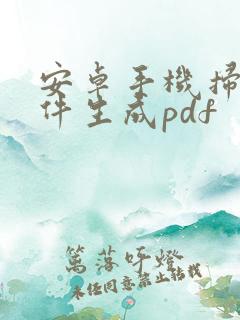 安卓手機掃
件生成pdf
篤落吁燈
未经同意禁止轉載